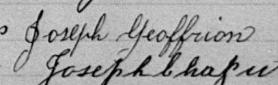 Joseph Geoffrion
Joseph Chapu